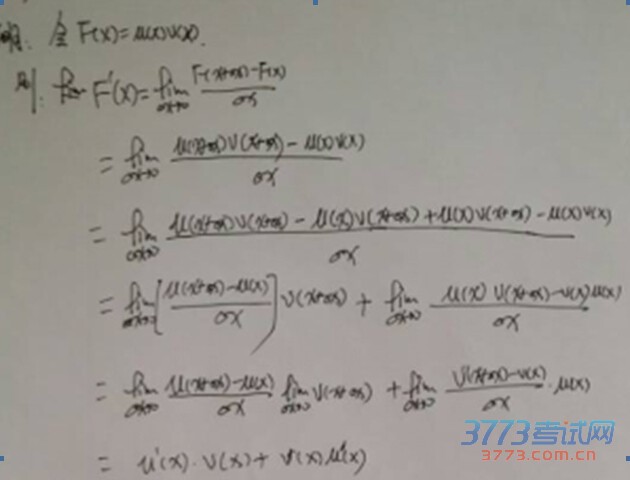 令 F(x)=u(x)v(x).
则: F'(x)=lim Δx→0 F(x+Δx)-F(x) / Δx
= lim Δx→0 u(x+Δx)v(x+Δx)-u(x)v(x) / Δx
= lim Δx→0 u(x+Δx)v(x+Δx)-u(x)v(x+Δx)+u(x)v(x+Δx)-u(x)v(x) / Δx
= lim Δx→0 [u(x+Δx)-u(x) / Δx] v(x+Δx) + lim Δx→0 u(x) v(x+Δx)-v(x)u(x) / Δx
= lim Δx→0 u(x+Δx)-u(x) / Δx lim Δx→0 v(x+Δx) + lim Δx→0 v(x+Δx)-v(x) / Δx · u(x)
= u'(x)·v(x)+
3773考试网
3773.com.cn